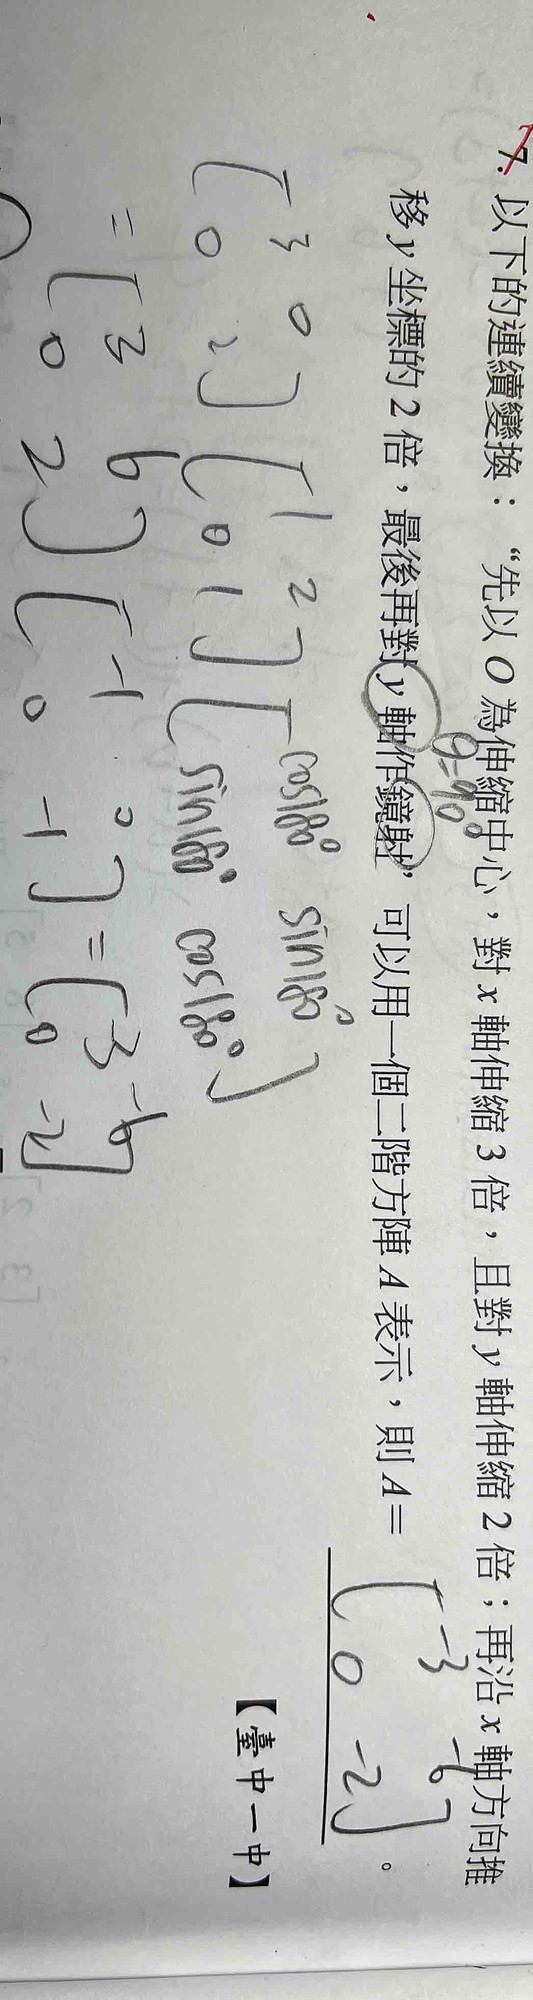 7. 以下的連續變換：“先以 O 為伸縮中心，對 x 軸伸縮 3 倍，且對 y 軸伸縮 2 倍；再沿 x 軸方向推
θ=90°
移 y 坐標的 2 倍，最後再對 y 軸作鏡射”可以用一個二階方陣 A 表示，則 A= [-3 -6
0 -2] 。
【臺中一中】
[3 0 [1 2 [cos180° sin180°
0 2] 0 1] sin180° cos180°]
= [3 6 [-1 0 = [-3 -6
0 2] 0 -1] 0 -2]